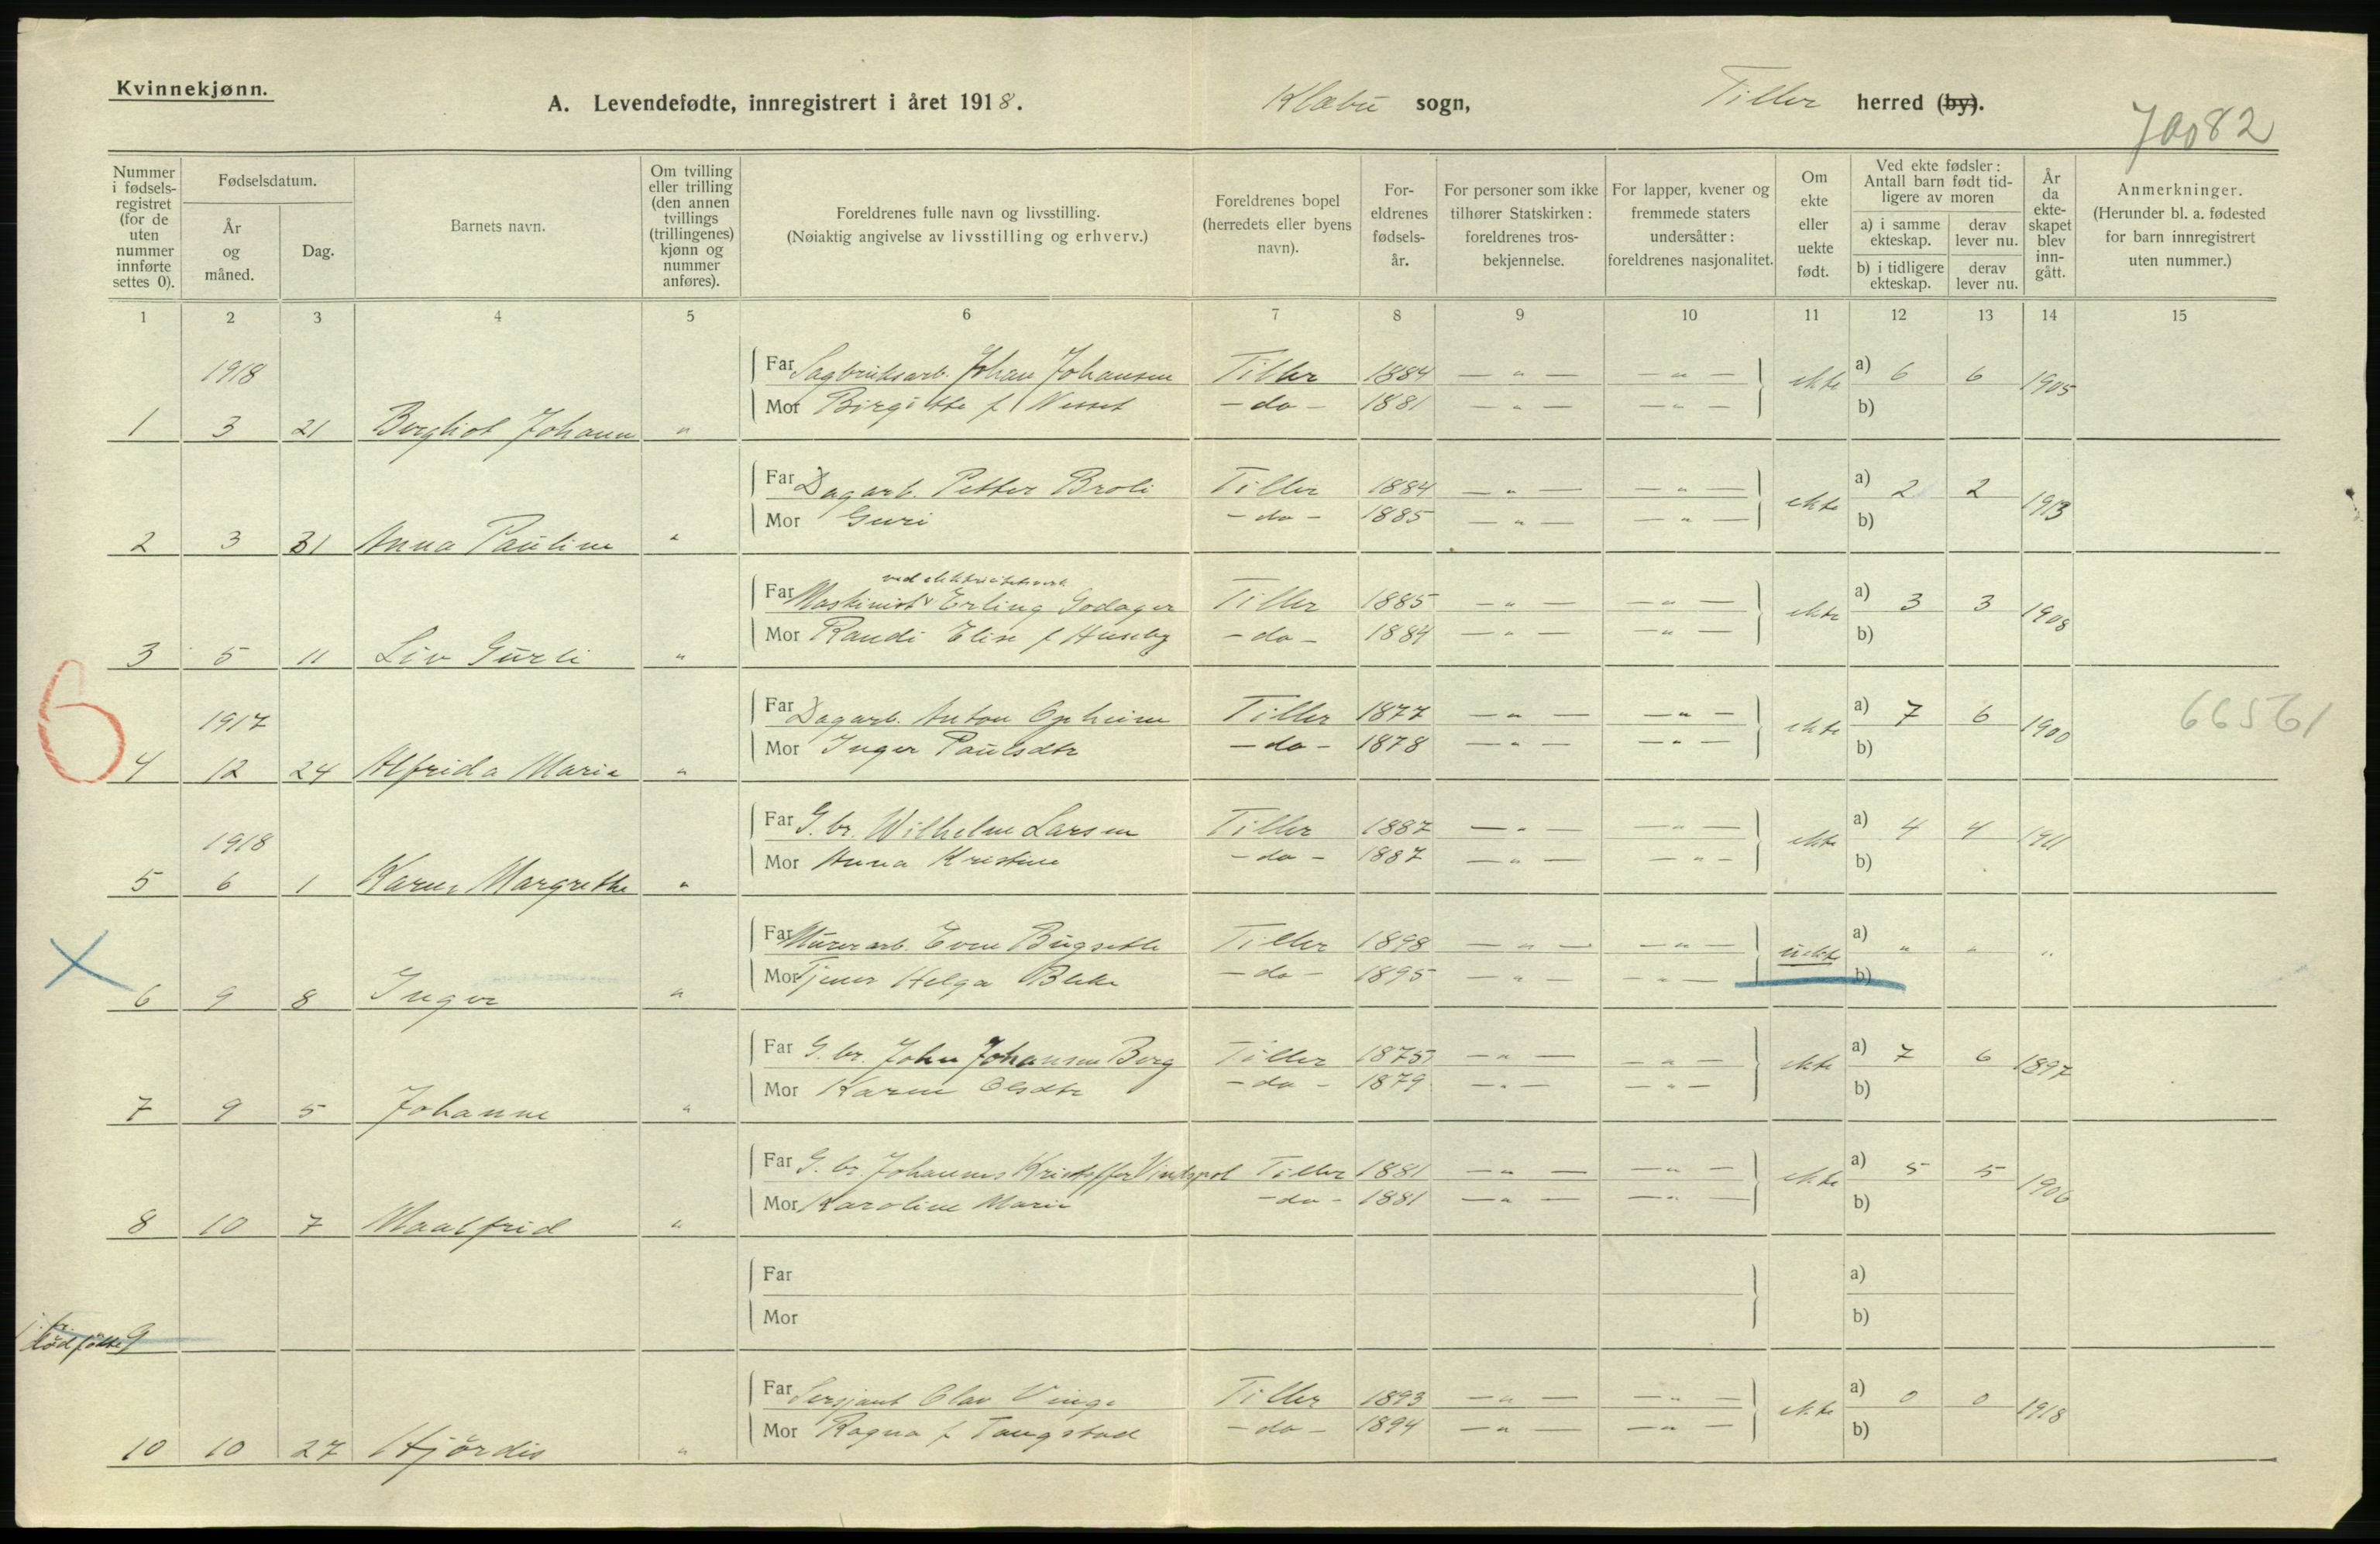 Kvinnekjønn.
A. Levendefødte, innregistrert i året 1918.
Klæbu sogn, Tiller herred (by).
70082
Nummer i fødselsregistret (for de uten nummer innførte settes 0).
Fødselsdatum.
År og måned.
Dag.
Barnets navn.
Om tvilling eller trilling (den annen tvillings (trillingenes) kjønn og nummer anføres).
Foreldrenes fulle navn og livsstilling.
(Nøiaktig angivelse av livsstilling og erhverv.)
Foreldrenes bopel (herredets eller byens navn).
Foreldrenes fødselsår.
For personer som ikke tilhører Statskirken: foreldrenes trosbekjennelse.
For lapper, kvener og fremmede staters undersåtter: foreldrenes nasjonalitet.
Om ekte eller uekte født.
Ved ekte fødsler: Antall barn født tidligere av moren
a) i samme ekteskap.
derav lever nu.
b) i tidligere ekteskap.
derav lever nu.
År da ekteskapet blev inngått.
Anmerkninger.
(Herunder bl. a. fødested for barn innregistrert uten nummer.)
1 2 3 4 5 6 7 8 9 10 11 12 13 14 15
1918
Far Sagbruksarb. Johan Johansen Tiller 1884 — " — — " — ekte a) 6 6 1905
Mor Birgitte f Nesset — do — 1881 — " — — " — b)
1 3 21 Bergliot Johann "
Far Dagarb. Petter Broli Tiller 1884 — " — — " — ekte a) 2 2 1913
Mor Guri — do — 1885 — " — — " — b)
2 3 31 Anna Pauline "
ved elektricitetsverk
Far Maskinist Erling Godager Tiller 1885 — " — — " — ekte a) 3 3 1908
Mor Randi Elise f Huseby — do — 1884 — " — — " — b)
3 5 11 Liv Gurli "
6
1917
Far Dagarb. Anton Opheim Tiller 1877 — " — — " — ekte a) 7 6 1900 66561
Mor Inger Paulsdtr — do — 1878 — " — — " — b)
4 12 24 Alfrida Marie "
1918
Far G. br. Wilhelm Larsen Tiller 1887 — " — — " — ekte a) 4 4 1911
Mor Anna Kristine — do — 1887 — " — — " — b)
5 6 1 Karen Margrethe "
Far Murerarb. Even Tiller 1898 — " — — " — uekte a) " " "
Mor Tjener Helga — do — 1895 — " — — " — b)
6 9 8 Inger "
Far G. br. John Johansen Berg Tiller 1875 — " — — " — ekte a) 7 6 1897
Mor Karen Olsdtr — do — 1879 — " — — " — b)
7 9 5 Johanne "
Far G. br. Johannes Kristoffer Tiller 1881 — " — — " — ekte a) 5 5 1906
Mor Karoline Marie — do — 1881 — " — — " — b)
8 10 7 Maalfrid "
Far a)
Mor b)
dødfødte 9
Far Sersjant Olav Vinge Tiller 1893 — " — — " — ekte a) 0 0 1918
Mor Ragna f Tangstad — do — 1894 — " — — " — b)
10 10 27 Hjördis "